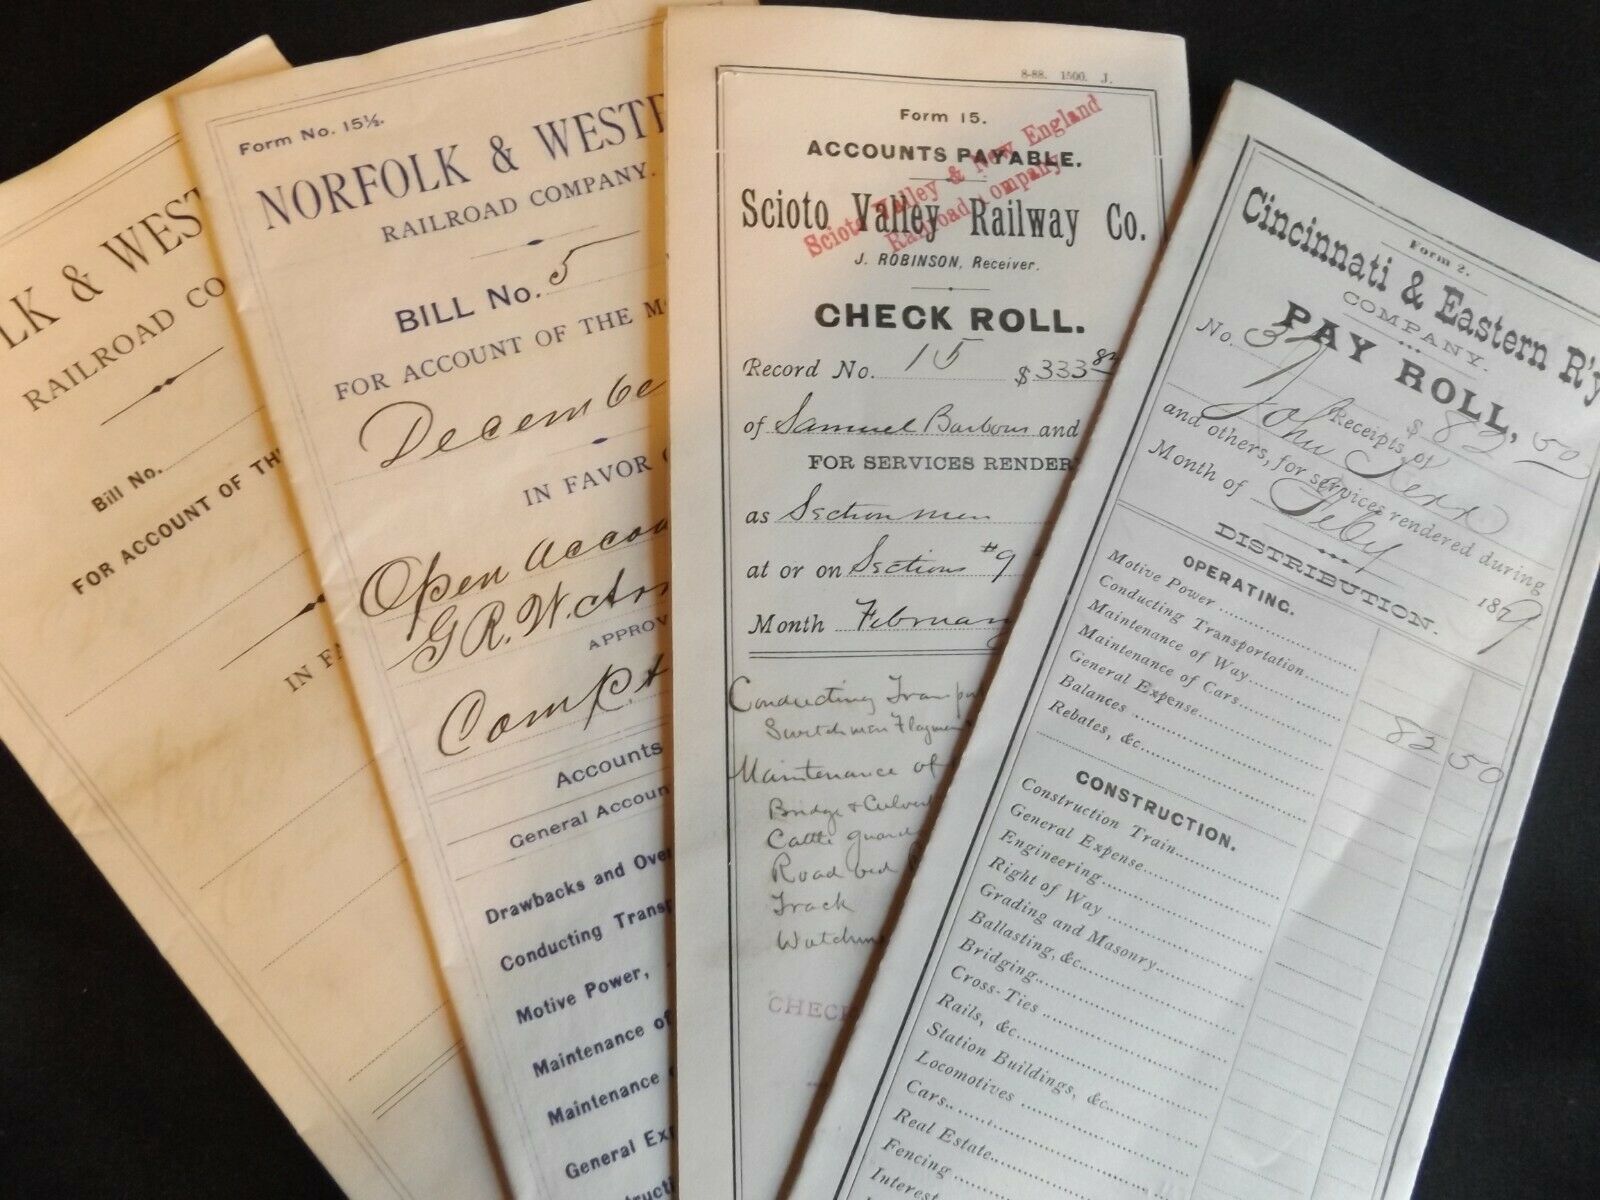 LK & WEST
RAILROAD CO
Bill No.
FOR ACCOUNT OF TH
IN FA
Form No. 15½.
NORFOLK & WESTE
RAILROAD COMPANY.
BILL No. 5
FOR ACCOUNT OF THE M
Decembe
IN FAVOR
Open Accou
G.R.W.
APPROV
Compt
Accounts
General Accoun
Drawbacks and Over
Conducting Transp
Motive Power,
Maintenance of
Maintenance
General Exp
8-88. 1500. J.
Form 15.
ACCOUNTS PAYABLE.
Scioto Valley & New England
Railroad Company
Scioto Valley Railway Co.
J. ROBINSON, Receiver.
CHECK ROLL.
Record No. 15 $333 82
of Samuel Barbour and
FOR SERVICES RENDER
as Section men
at or on Sections #9
Month February
Conducting Transp
Switchmen Flagmen
Maintenance of
Bridge & Culvert
Cattle guard
Road bed
Track
Watchm
CHEC
Form 2.
Cincinnati & Eastern R'y
COMPANY.
PAY ROLL,
No. 37 $82.50
Receipts of
John Kerr
and others, for services rendered during
Month of Feby 1879
DISTRIBUTION.
OPERATING.
Motive Power
Conducting Transportation
Maintenance of Way 82 50
Maintenance of Cars
General Expense
Balances
Rebates, &c
CONSTRUCTION.
Construction Train
General Expense
Engineering
Right of Way
Grading and Masonry
Ballasting, &c
Bridging
Cross-Ties
Rails, &c
Station Buildings, &c
Locomotives
Cars
Real Estate
Fencing
Interest